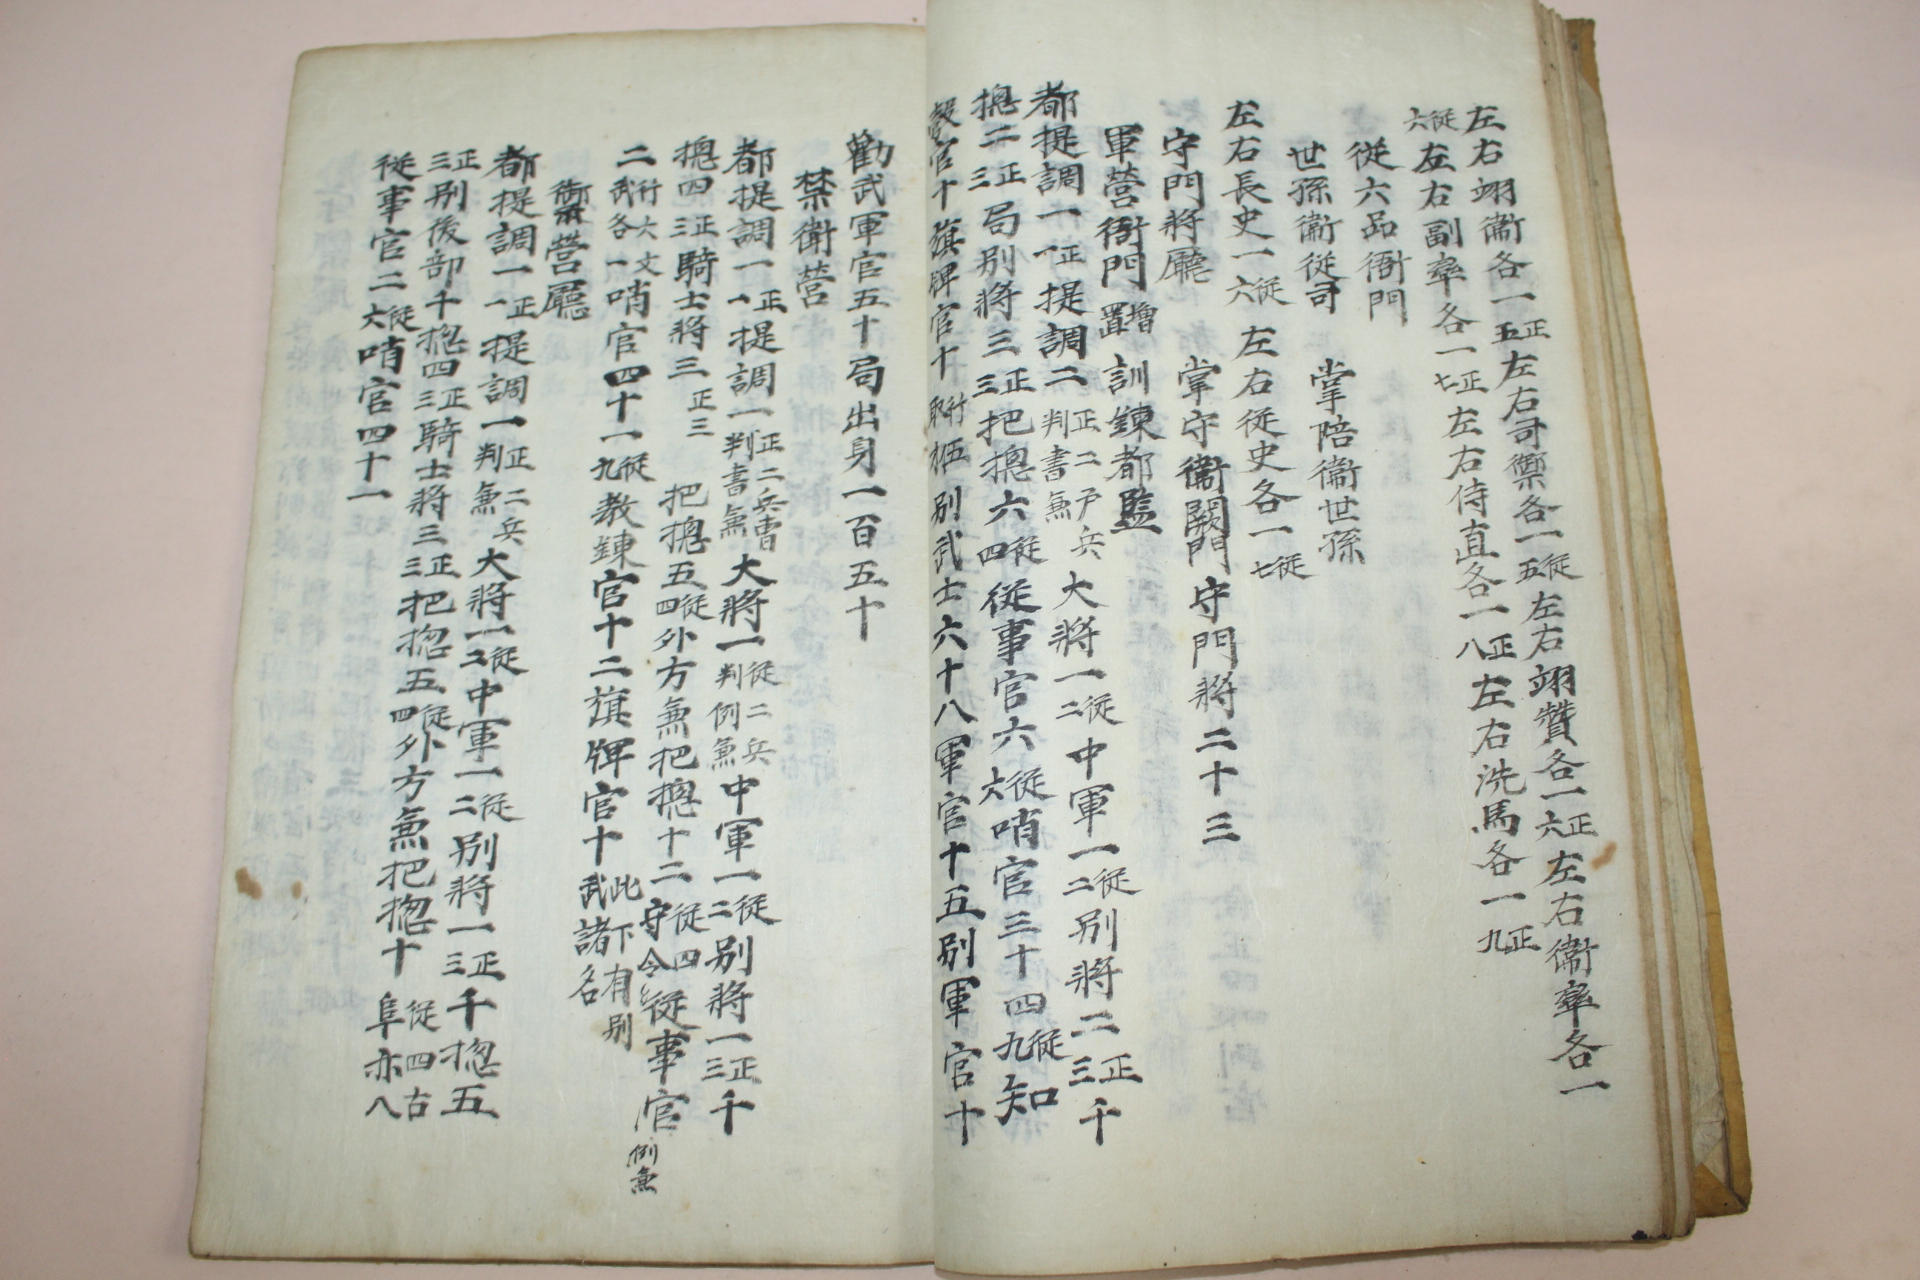 左右翊衛各一正五左右司禦各一從五左右翊贊各一正六左右衛率各一
從六左右副率各一正七左右侍直各一正八左右洗馬各一正九
從六品衙門
世孫衛從司 掌陪衛世孫
左右長史一從六 左右從史各一從七
守門將廳 掌守衛闕門守門將二十三
軍營衙門增置 訓鍊都監
都提調一正一提調二正二戶兵判書兼大將一從二中軍一從二別將二正三千
摠二正三局別將三正三把摠六從四從事官六從六哨官三十四從九知
彀官十旗牌官十行伍取 別武士六十八軍官十五別軍官十
勸武軍官五十局出身一百五十
禁衛營
都提調一正一提調一正二兵曹判書兼大將一從二兵判例兼中軍一從二別將一正三千
摠四正三騎士將三正三 把摠五從四外方兼把摠十二從四守令從事官例兼
二行大文武各一哨官四十一從九教鍊官十二旗牌官十此下有別武諸名
御營廳
都提調一正一提調一正二兵判兼大將一從二中軍一從二別將一正三千摠五
正三別後部千摠四正三騎士將三正三把摠五從四外方兼把摠十從四古阜亦八
從事官二從六哨官四十一